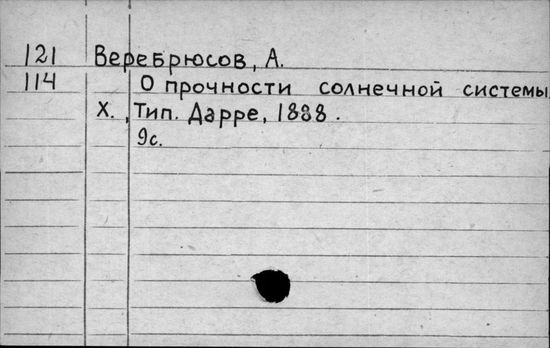 121 Веребрюсов, А.
114 О прочности солнечной системы
Х., Тип. Дарре, 1888.
9с.